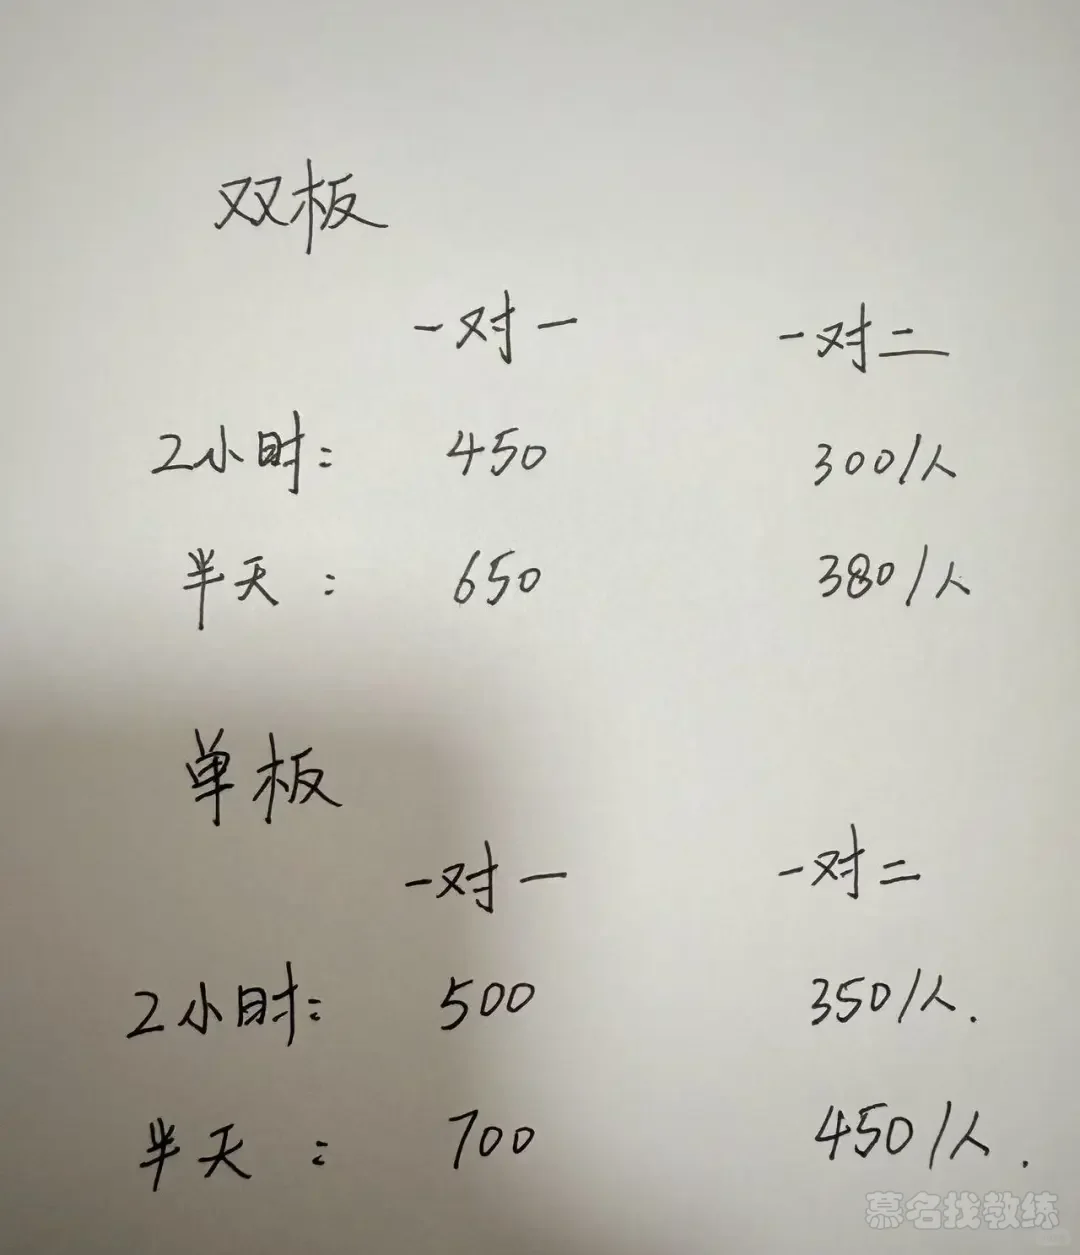 双板
一对一 一对二
2小时: 450 300/人
半天: 650 380/人
单板
一对一 一对二
2小时: 500 350/人.
半天: 700 450/人.
慕名找教练